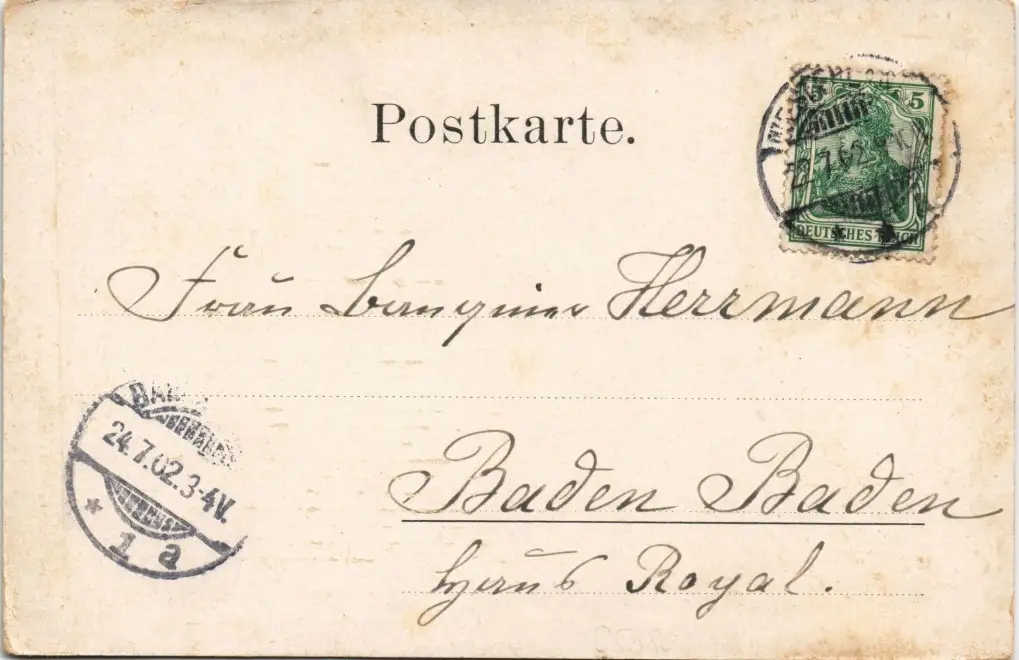 Postkarte.
5 5
DEUTSCHES REICH
Frau Banquier Herrmann
24.7.02.3-4V.
* 1 a
Baden Baden
Haus Royal.